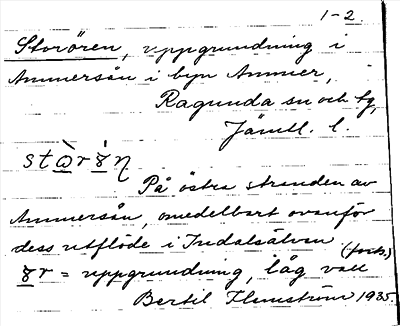 1-2.
Storören, uppgrundning i
Ammerån i byn Ammer,
Ragunda sn och tg,
Jämtl. l.
På östra stranden av
Ammerån, omedelbart ovanför
dess utflöde i Indalsälven (forts.)
= uppgrundning, låg vall
Bertil Flemström 1935.